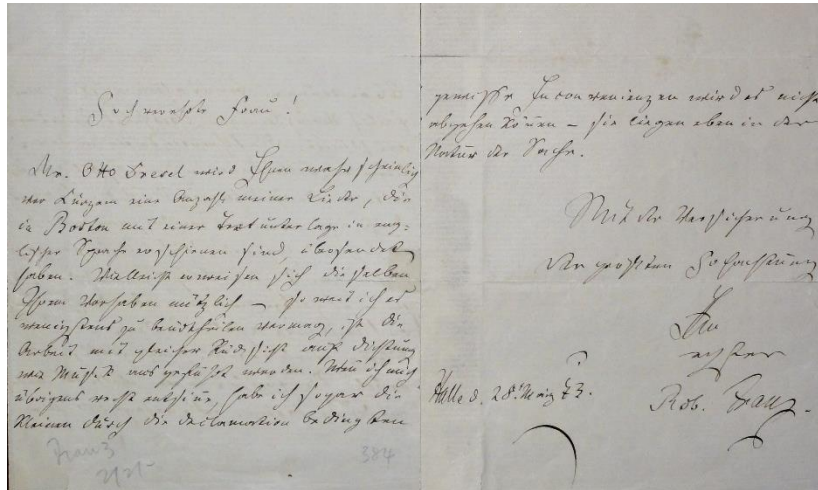 Hoch verehrte Frau!
Mr. Otto Dresel wird Ihnen wahrscheinlich
vor Kurzem eine Anzahl meiner Lieder, die
in Boston mit einer Textunterlage in eng-
lischer Sprache erschienen sind, übersendet
haben. Vielleicht erweisen sich dieselben
Ihrem Vorhaben nützlich – so weit ich es
wenigstens zu beurtheilen vermag, ist die
Arbeit mit gleicher Rücksicht auf Dichtung
wie Musik ausgeführt worden. Wenn ich mich
übrigens recht entsinne, habe ich sogar die
kleinen durch die Declamation bedingten
Franz
384
gewisse Inconvenienzen wird es nicht
abgehen können – sie liegen eben in der
Natur der Sache.
Mit der Versicherung
der größten Hochachtung
Ihr
Halle d. 28. März 73.
Rob. Franz.